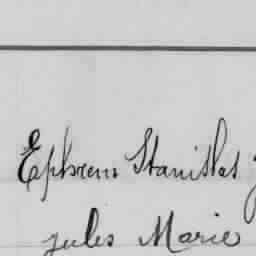 Ephrem Stanislas
jules Marie